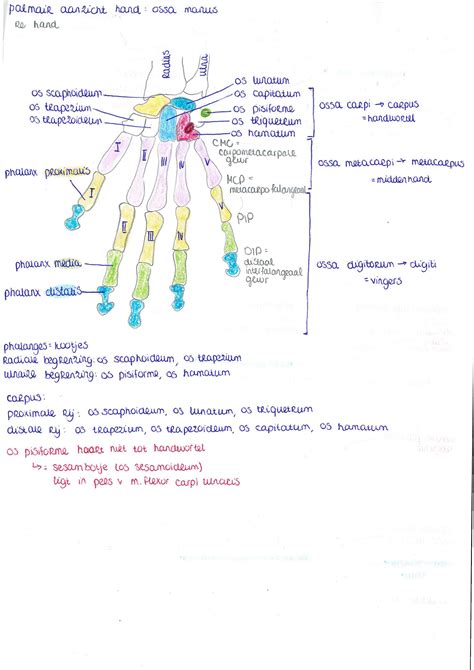 palmair aanzicht hand: ossa manus
Re hand
Radius
ulna
os scaphoideum
os trapezium
os trapezoideum
os lunatum
os capitatum
os pisiforme
os triquetrum
os hamatum
ossa carpi → carpus
= handwortel
CMC =
carpometacarpale
gewr
ossa metacarpi → metacarpus
= middenhand
MCP =
metacarpo falangeaal
phalanx proximalis
I
II
III
IV
V
I
V
PIP
II
III
IV
DIP =
distaal
interfalangeaal
gewr
ossa digitorum → digiti
= vingers
phalanx media
phalanx distalis
phalanges = kootjes
Radiale begrenzing: os scaphoideum, os trapezium
ulnaire begrenzing: os pisiforme, os hamatum
carpus:
proximale rij: os scaphoideum, os lunatum, os triquetrum
distale rij: os trapezium, os trapezoideum, os capitatum, os hamatum
os pisiforme hoort niet tot handwortel
↳ = sesambotje (os sesamoideum)
ligt in pees v m. flexor carpi ulnaris